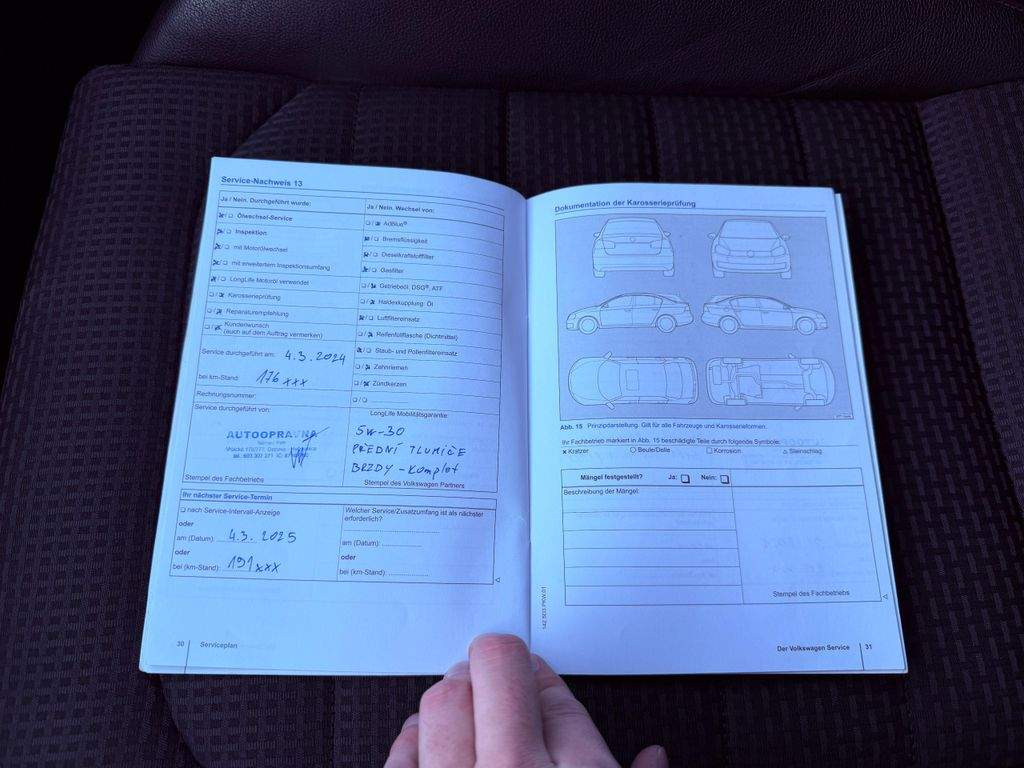 Service-Nachweis 13
Ja / Nein. Durchgeführt wurde:
Ölwechsel-Service
Inspektion
mit Motorölwechsel
mit erweitertem Inspektionsumfang
LongLife Motoröl verwendet
Karosserieprüfung
Reparaturempfehlung
Kundenwunsch
(auch auf dem Auftrag vermerken)
Service durchgeführt am: 4.3.2024
bei km-Stand: 176xxx
Rechnungsnummer:
Service durchgeführt von:
AUTOOPRAVNA
Stempel des Fachbetriebs
Ja / Nein. Wechsel von:
AdBlue®
Bremsflüssigkeit
Dieselkraftstofffilter
Gasfilter
Getriebeöl, DSG®, ATF
Haldexkupplung: Öl
Luftfiltereinsatz
Reifenfüllflasche (Dichtmittel)
Staub- und Pollenfiltereinsatz
Zahnriemen
Zündkerzen
LongLife Mobilitätsgarantie:
5W-30
PŘEDNÍ TLUMIČE
BRZDY - Komplet
Stempel des Volkswagen Partners
Ihr nächster Service-Termin
nach Service-Intervall-Anzeige
oder
am (Datum): 4.3. 2025
oder
bei (km-Stand): 191xxx
Welcher Service/Zusatzumfang ist als nächster
erforderlich?
am (Datum):
oder
bei (km-Stand):
30 Serviceplan
Dokumentation der Karosserieprüfung
Abb. 15 Prinzipdarstellung. Gilt für alle Fahrzeuge und Karosserieformen.
Ihr Fachbetrieb markiert in Abb. 15 beschädigte Teile durch folgende Symbole:
x Kratzer ○ Beule/Delle □ Korrosion △ Steinschlag
Mängel festgestellt? Ja: □ Nein: □
Beschreibung der Mängel:
Stempel des Fachbetriebs
Der Volkswagen Service 31